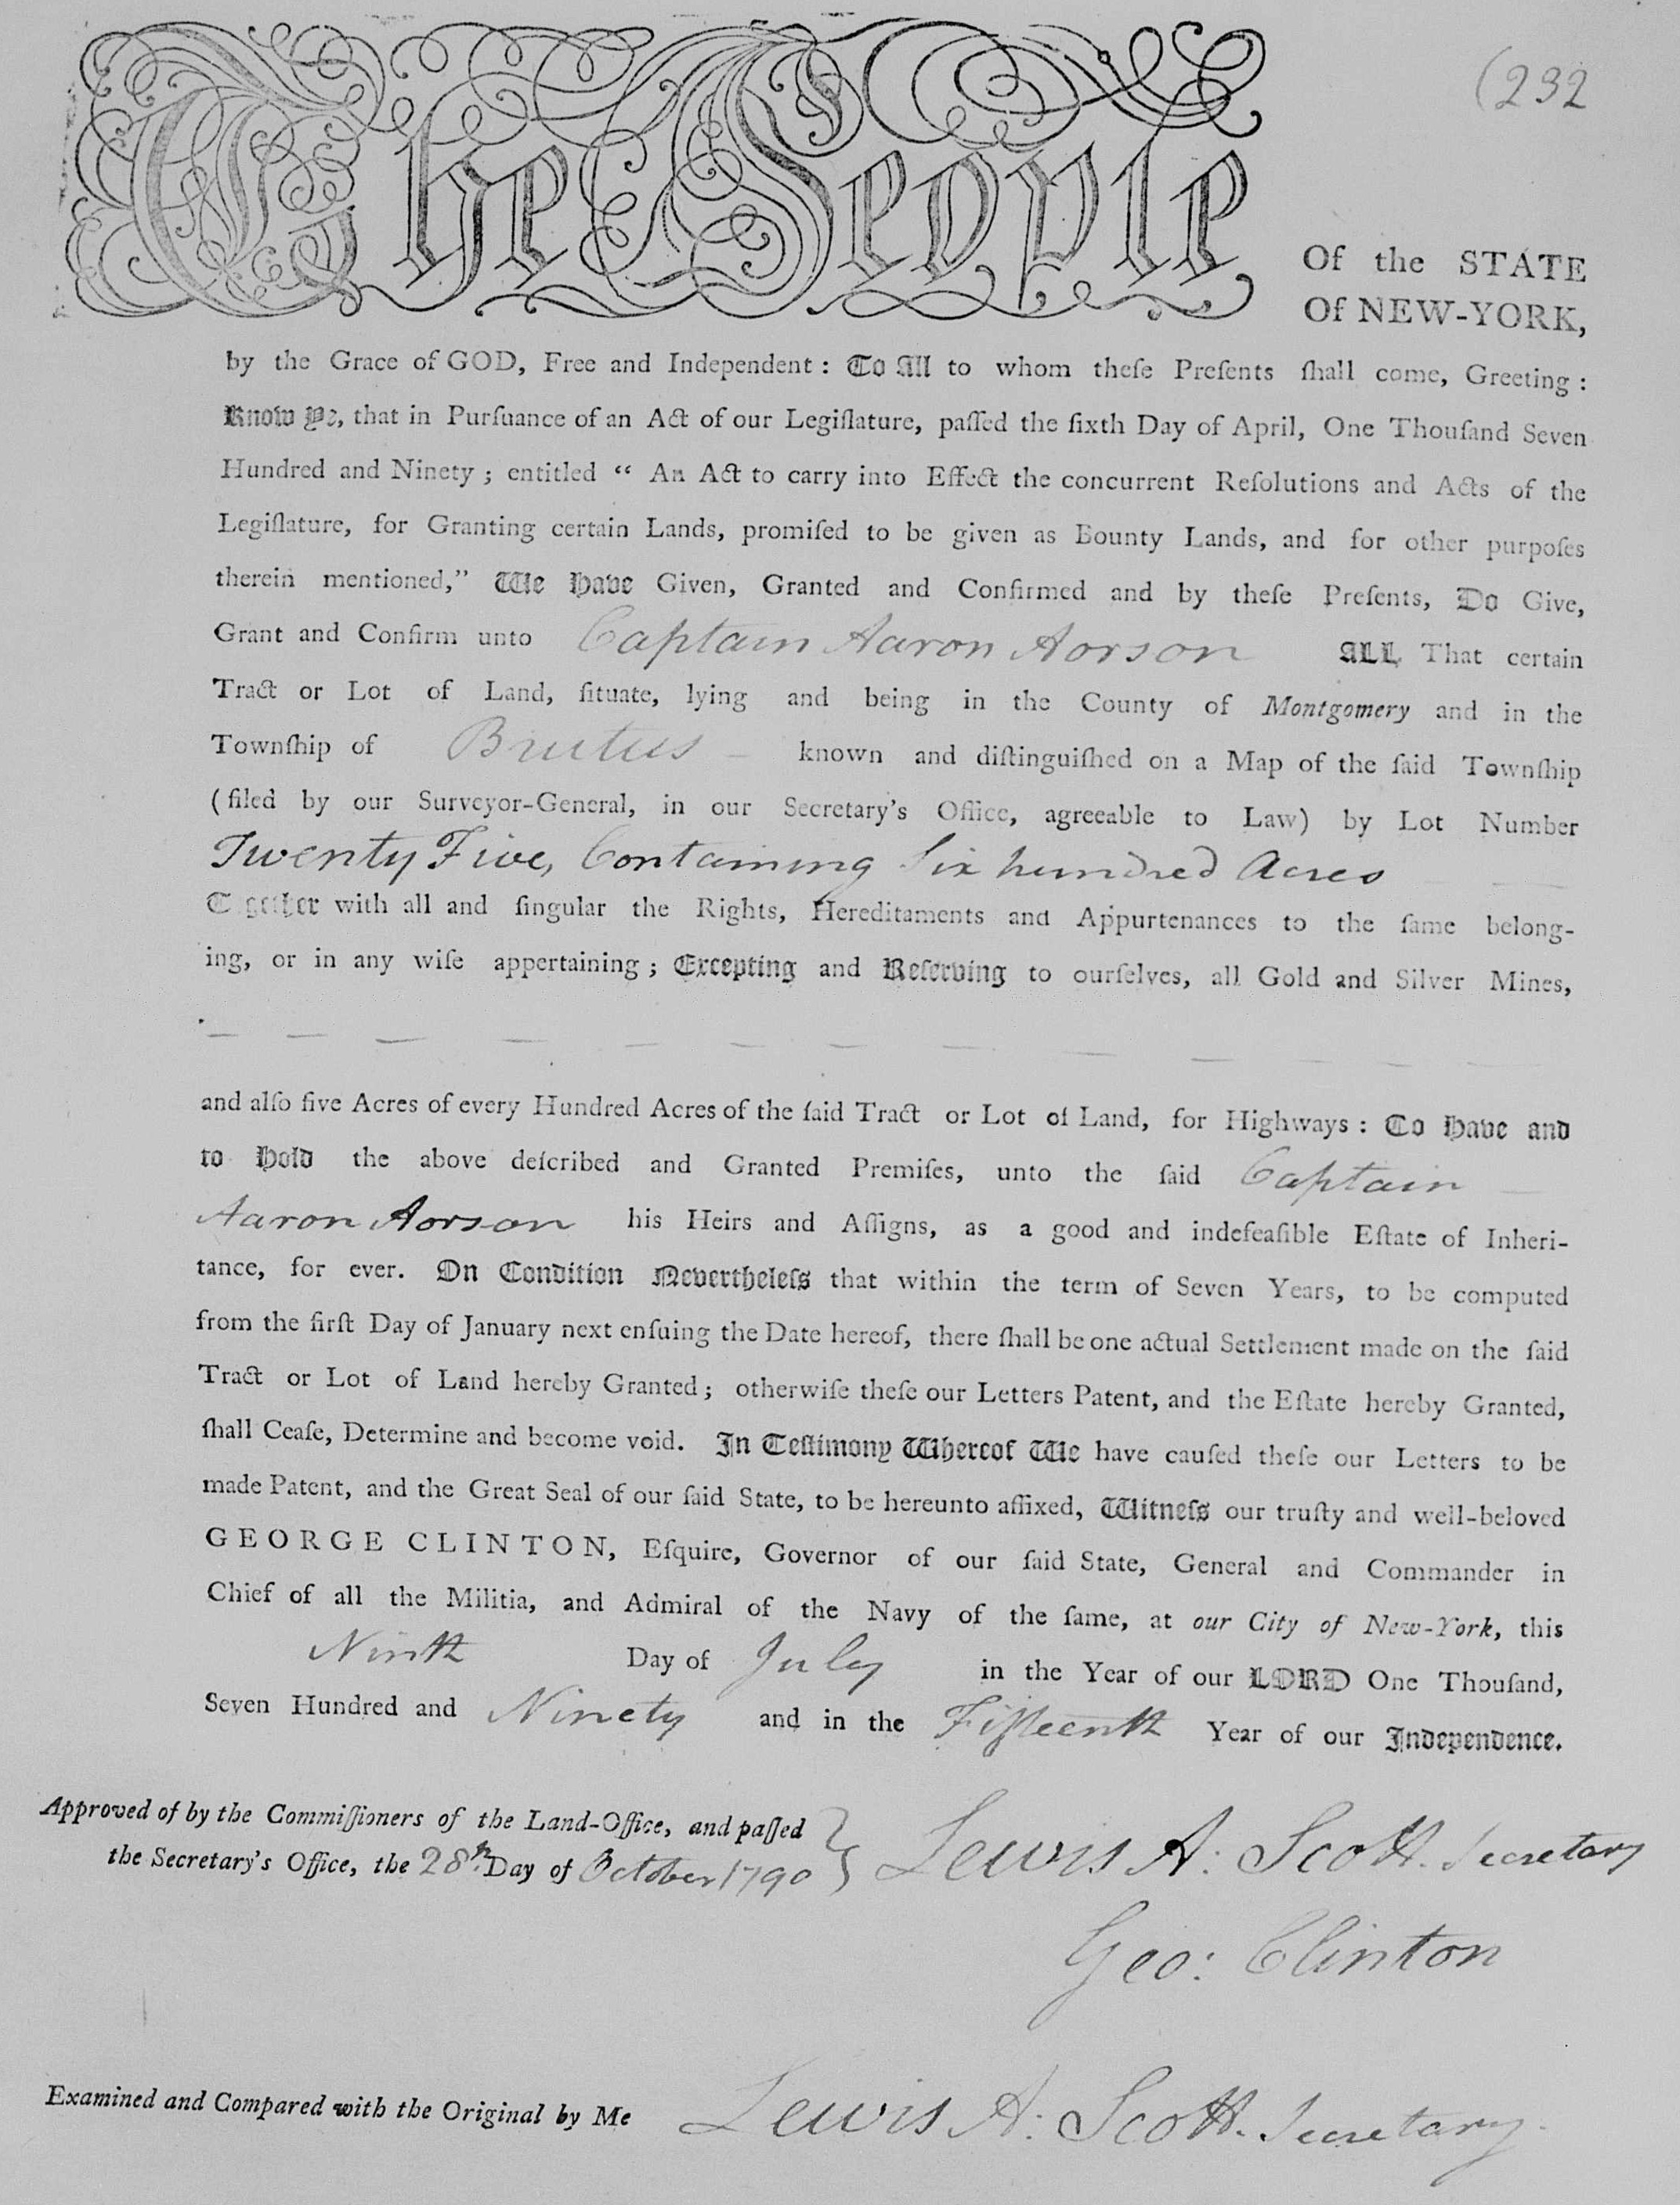 (232
The People
Of the STATE
Of NEW-YORK,
by the Grace of GOD, Free and Independent : To All to whom theſe Preſents ſhall come, Greeting :
Know Ye, that in Purſuance of an Act of our Legiſlature, paſſed the ſixth Day of April, One Thouſand Seven
Hundred and Ninety ; entitled “ An Act to carry into Effect the concurrent Reſolutions and Acts of the
Legiſlature, for Granting certain Lands, promiſed to be given as Bounty Lands, and for other purpoſes
therein mentioned,” We Have Given, Granted and Confirmed and by theſe Preſents, Do Give,
Grant and Confirm unto Captain Aaron Aorson ALL That certain
Tract or Lot of Land, ſituate, lying and being in the County of Montgomery and in the
Townſhip of Brutus – known and diſtinguiſhed on a Map of the ſaid Townſhip
(filed by our Surveyor-General, in our Secretary’s Office, agreeable to Law) by Lot Number
Twenty Five, Containing Six hundred Acres
Together with all and ſingular the Rights, Hereditaments and Appurtenances to the ſame belong-
ing, or in any wiſe appertaining ; Excepting and Reſerving to ourſelves, all Gold and Silver Mines,
and alſo five Acres of every Hundred Acres of the ſaid Tract or Lot of Land, for Highways : To Have and
to Hold the above deſcribed and Granted Premiſes, unto the ſaid Captain
Aaron Aorson his Heirs and Aſſigns, as a good and indefeaſible Eſtate of Inheri-
tance, for ever. On Condition Nevertheleſs that within the term of Seven Years, to be computed
from the firſt Day of January next enſuing the Date hereof, there ſhall be one actual Settlement made on the ſaid
Tract or Lot of Land hereby Granted ; otherwiſe theſe our Letters Patent, and the Eſtate hereby Granted,
ſhall Ceaſe, Determine and become void. In Teſtimony Whereof We have cauſed theſe our Letters to be
made Patent, and the Great Seal of our ſaid State, to be hereunto affixed, Witneſs our truſty and well-beloved
GEORGE CLINTON, Eſquire, Governor of our ſaid State, General and Commander in
Chief of all the Militia, and Admiral of the Navy of the ſame, at our City of New-York, this
Ninth Day of July in the Year of our LORD One Thouſand,
Seven Hundred and Ninety and in the Fifteenth Year of our Independence.
Approved of by the Commiſſioners of the Land-Office, and paſſed
the Secretary’s Office, the 28th Day of October 1790
Lewis A: Scott. Secretary
Geo: Clinton
Examined and Compared with the Original by Me Lewis A: Scott. Secretary.